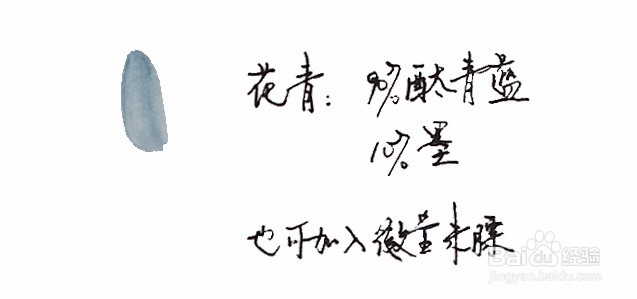 花青：90%酞青蓝
10%墨
也可加入微量朱膘
Baidu经验
jingyan.baidu.com